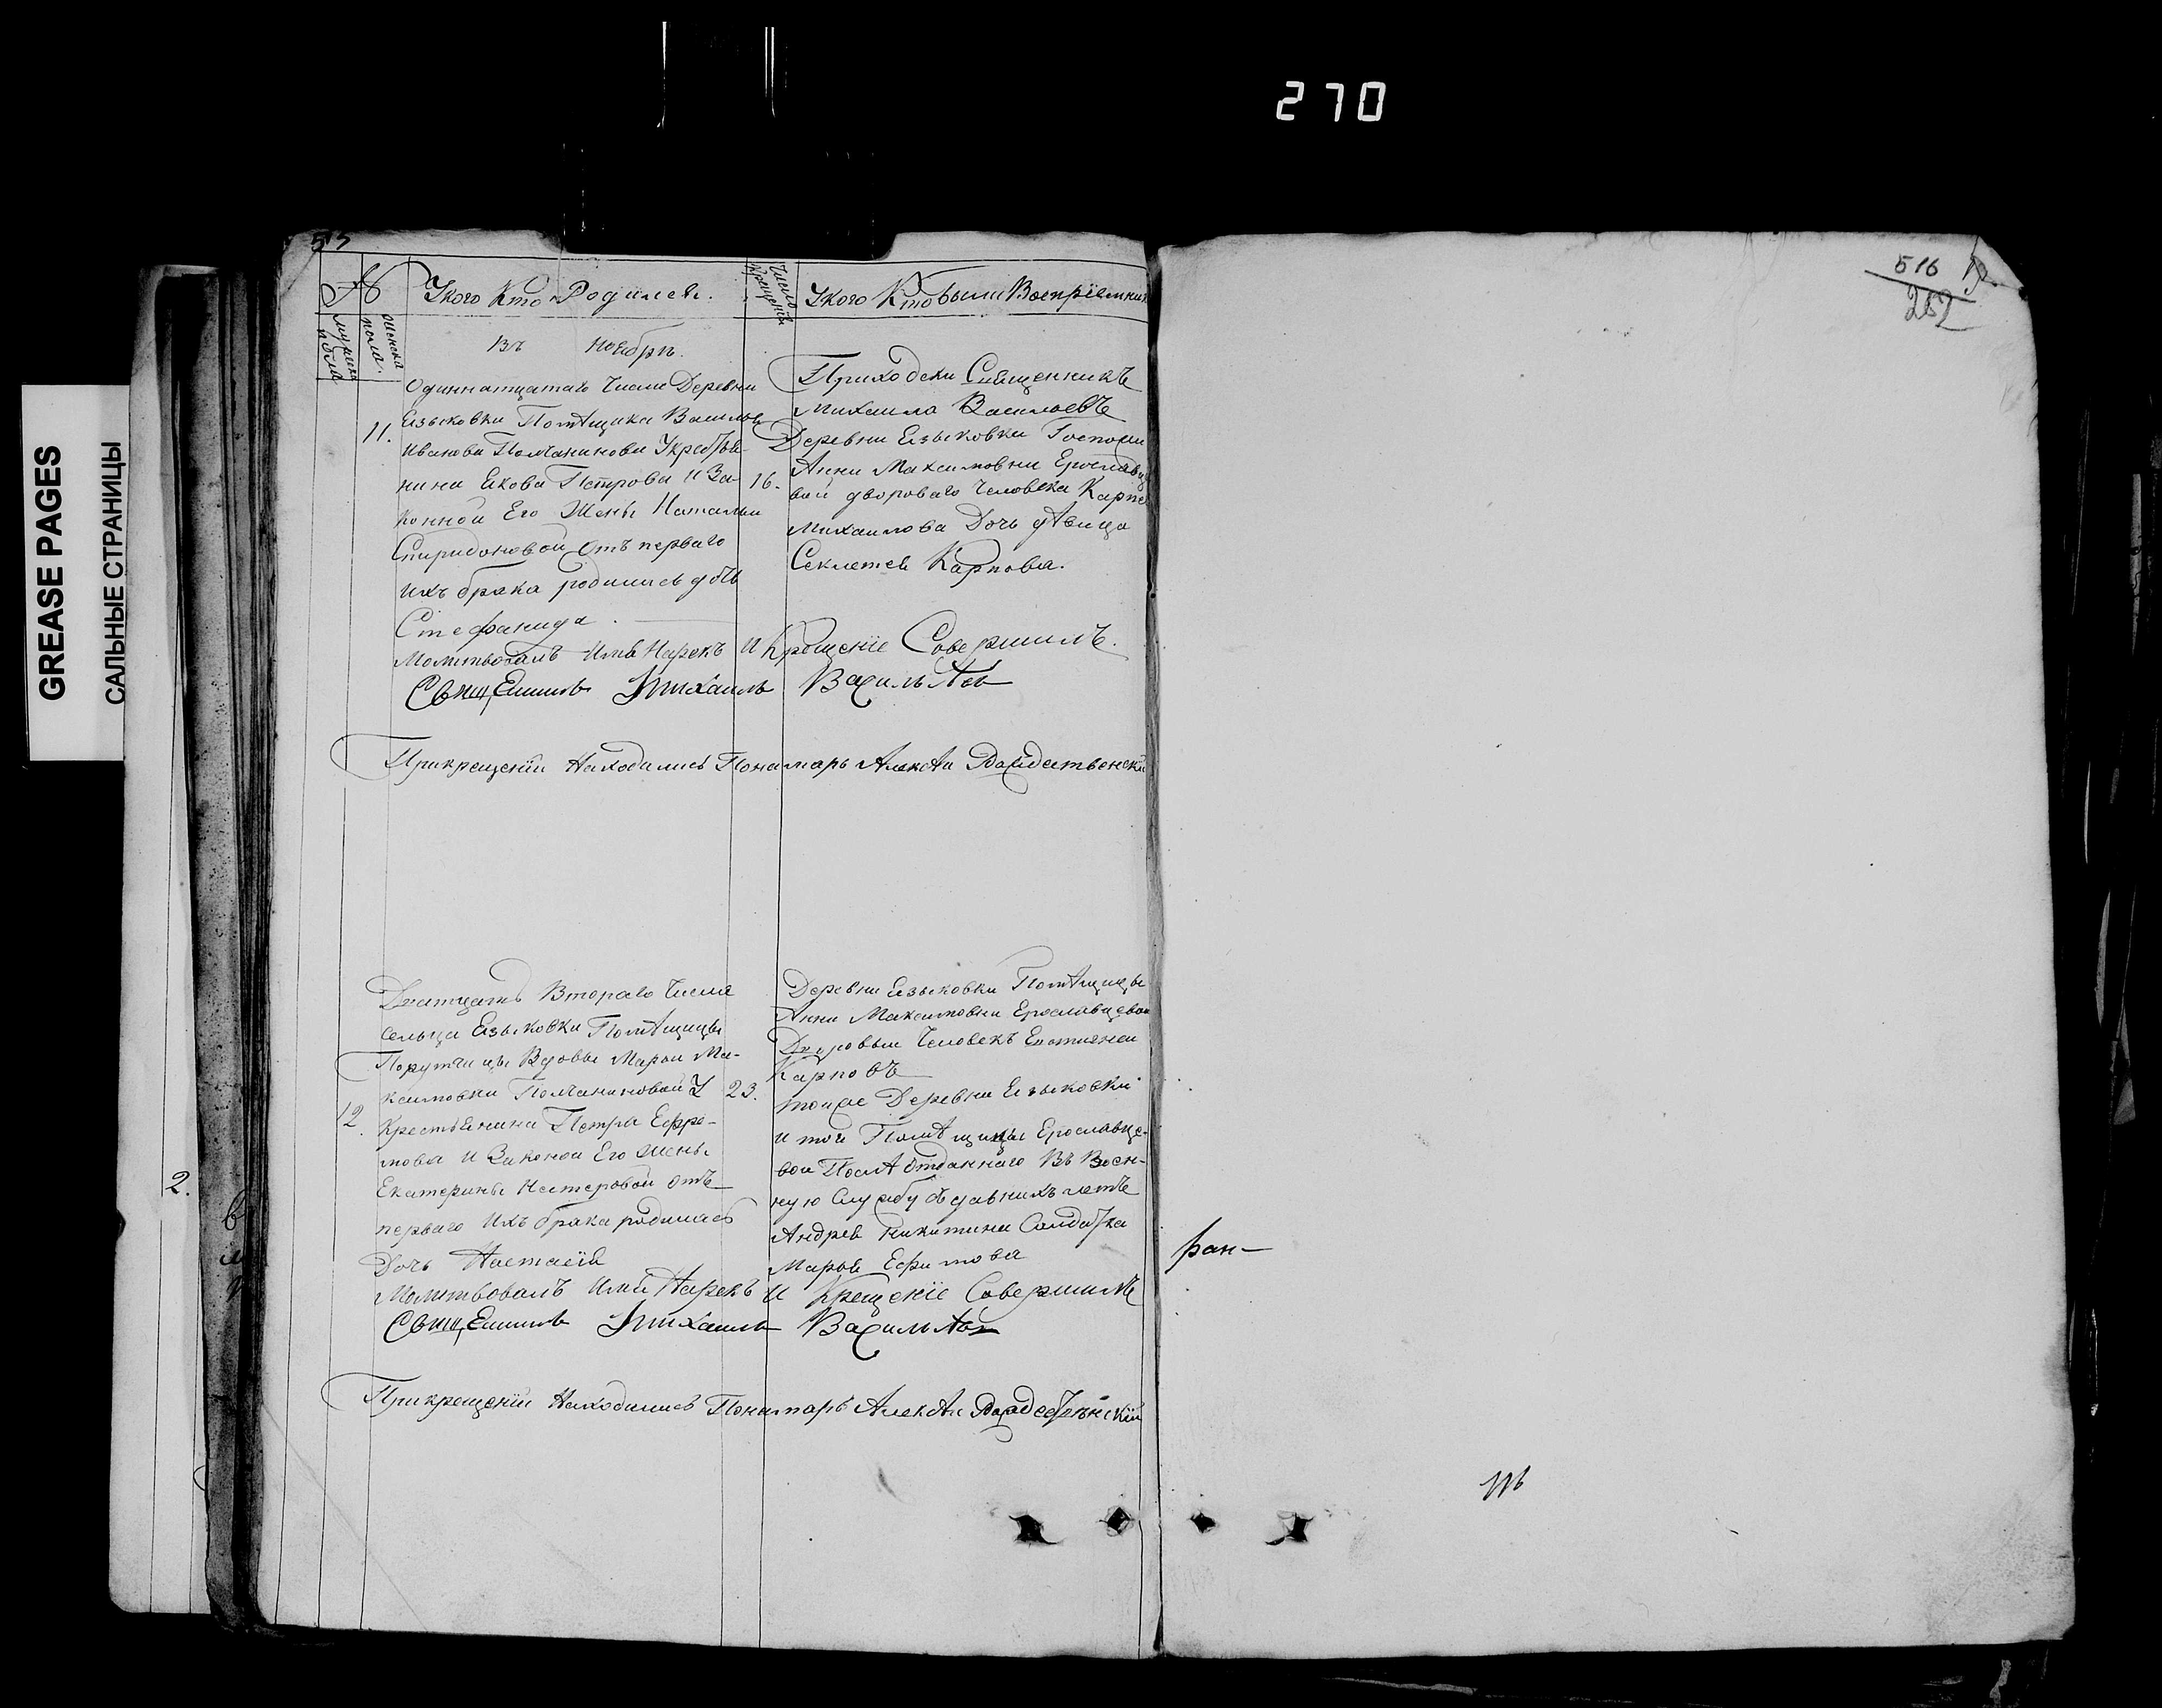 270
GREASE PAGES
САЛЬНЫЕ СТРАНИЦЫ
515
516
№ Укого Кто Родился. Число Крещенія Укого Кто были Воспріемник
мужеска пола женска пола.
Въ ноября.
Одиннатцатаго Числа Деревни
Языковки Помѣщика Василья
11.
Иванова Полчанинова Укрестья-
нина Якова Петрова и За-
конной Его Жены Натальи
Спиридоновой отъ перваго
ихъ брака родилась дочь
Стефанида
16.
Приходски Священникъ
Михаила Васильевъ
Деревни Языковки Госпожи
Анны Максимовны Ерославце
вой двороваго Человека Карпа
Михаилова Дочь дѣвица
Секлетея Карпова.
Молитвовалъ Имя Нарекъ И Крещеніе Совершилъ.
Священникъ Михаилъ Васильѣв
Прикрещеніи Находились Понамарь Алексѣи Рождественски
Дватцать Втораго Числа
сельца Языковки Помѣщицы
Порутчицы Вдовы Марьи Ма-
ксимовны Полчаниновой У
12.
Крестьянина Петра Ефре-
мова И Законой Его жены
Екатерины Нестеровой отъ
перваго Ихъ брака родилась
Дочь Настасія
23.
Деревни Языковки Помѣщицы
Анны Максимовны Ерославцевой
Дворовыи Человекъ
Карповъ
тойже Деревни Языковки
и тои Помѣщицы Ерославце-
вой Послѣ отданнаго Въ Воен-
ную Службу
Андрея Никитина Солдатка
Марья Ефимова
Молитвовалъ Имя Нарекъ И Крещеніе Совершилъ
Священникъ Михаилъ Васильѣв
Прикрещеніи Находились Понамарь Алексѣи Рождественскіи
2.